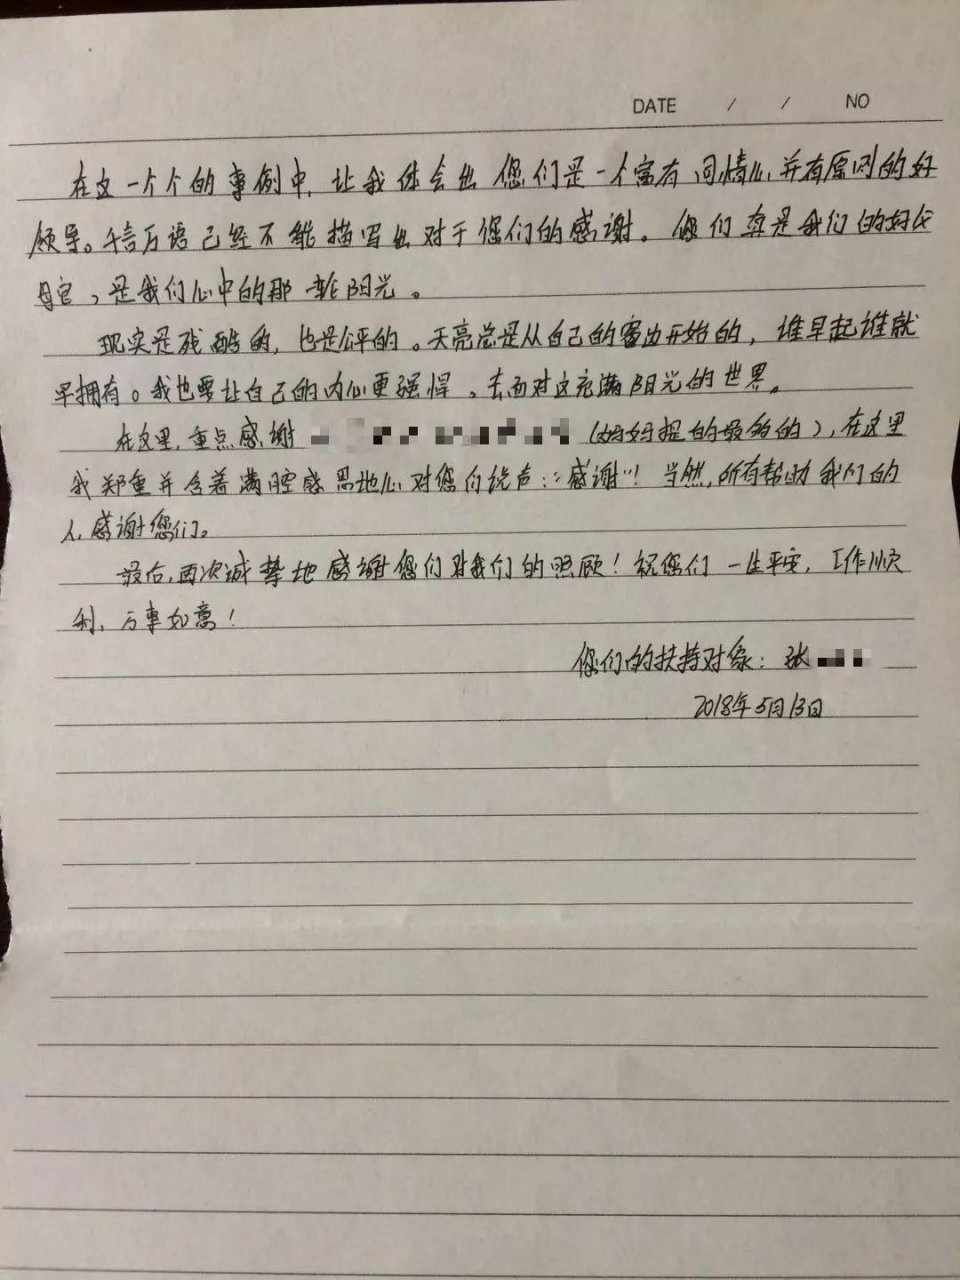 DATE / / NO
在这一个个的事例中,让我体会出您们是一个富有同情心,并有原则的好
领导。千言万语已经不能描写出对于您们的感谢。您们真是我们的好父
母官,是我们心中的那一轮阳光。
现实是残酷的,也是公平的。天亮总是从自己的窗出开始的,谁早起谁就
早拥有。我也要让自己的内心更强悍、去面对这充满阳光的世界。
在这里,重点感谢 (妈妈提的最多的),在这里
我郑重并含着满腔感恩地心对您们说声:“感谢”!当然,所有帮助我们的
人,感谢您们。
最后,再次诚挚地感谢您们对我们的照顾!祝您们一生平安,工作顺
利,万事如意!
您们的扶持对象:张
2018年5月13日